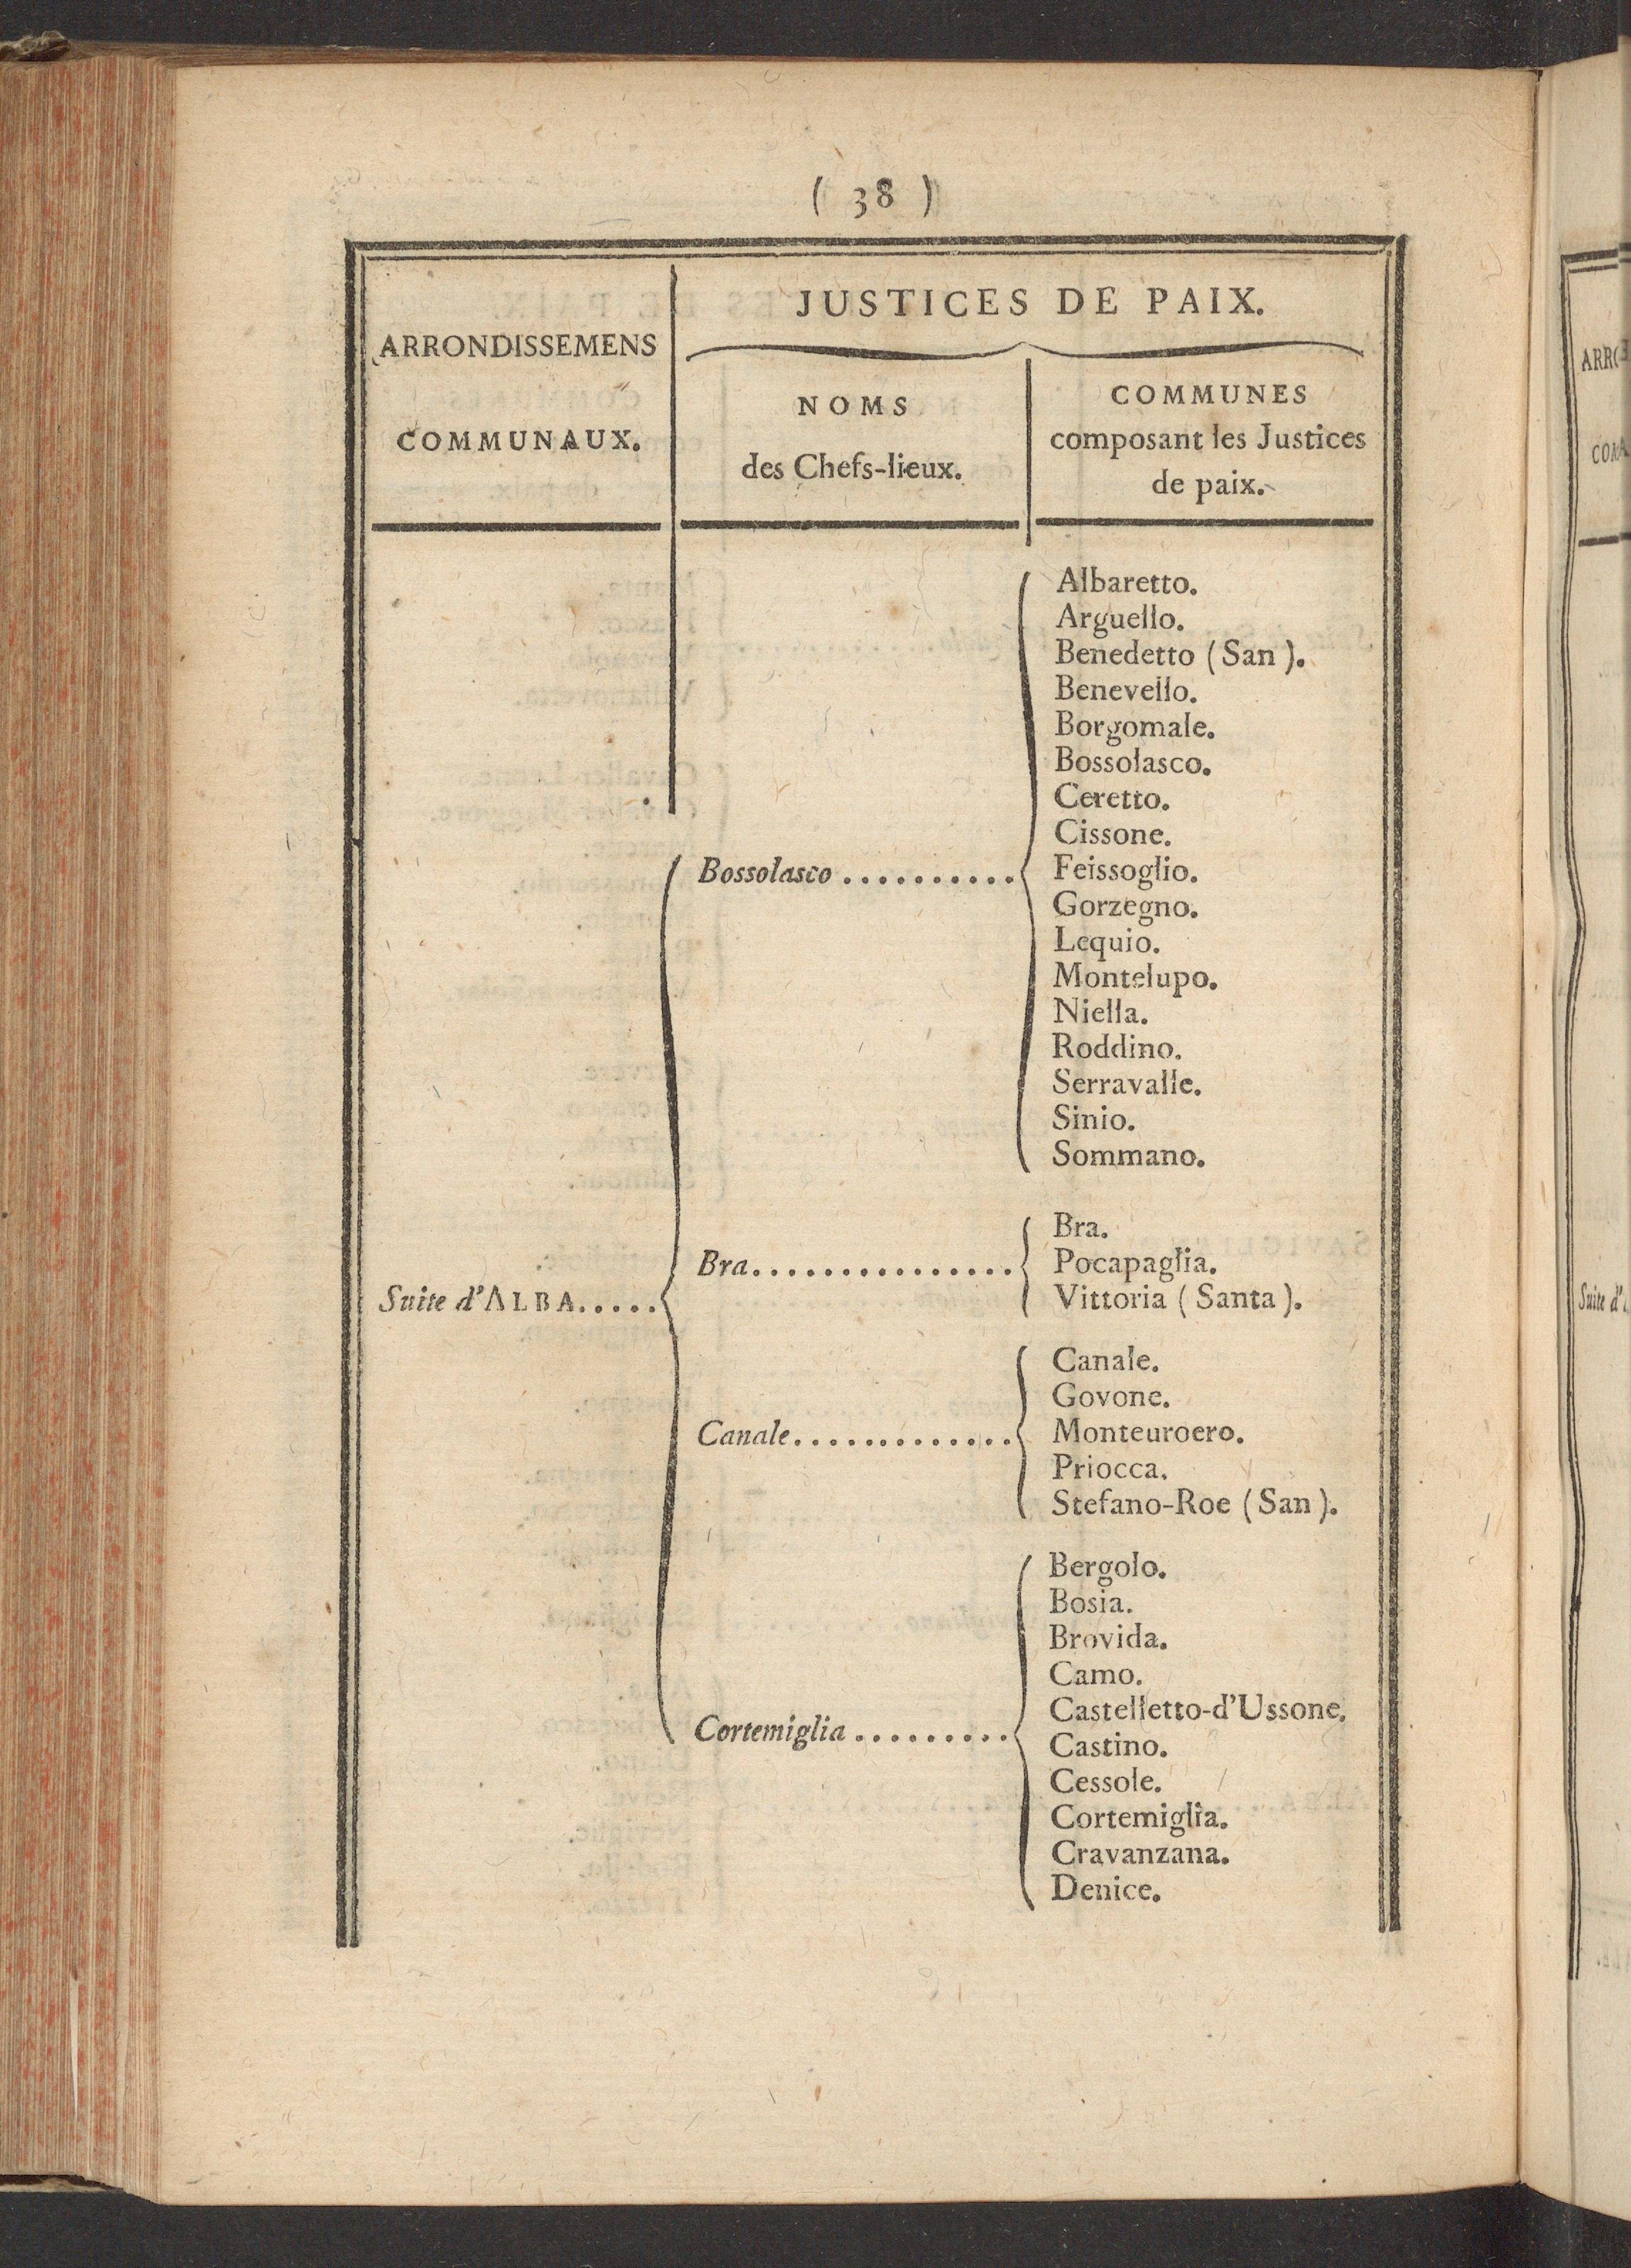 ( 38 )
JUSTICES DE PAIX.
ARRONDISSEMENS
COMMUNAUX.
NOMS
des Chefs-lieux.
COMMUNES
composant les Justices
de paix.
Suite d'ALBA.....
Bossolasco ..........
Albaretto.
Arguello.
Benedetto (San).
Benevello.
Borgomale.
Bossolasco.
Ceretto.
Cissone.
Feissoglio.
Gorzegno.
Lequio.
Montelupo.
Niella.
Roddino.
Serravalle.
Sinio.
Sommano.
Bra...............
Bra.
Pocapaglia.
Vittoria (Santa).
Canale.............
Canale.
Govone.
Monteuroero.
Priocca.
Stefano-Roe (San).
Cortemiglia .........
Bergolo.
Bosia.
Brovida.
Camo.
Castelletto-d'Ussone.
Castino.
Cessole.
Cortemiglia.
Cravanzana.
Denice.